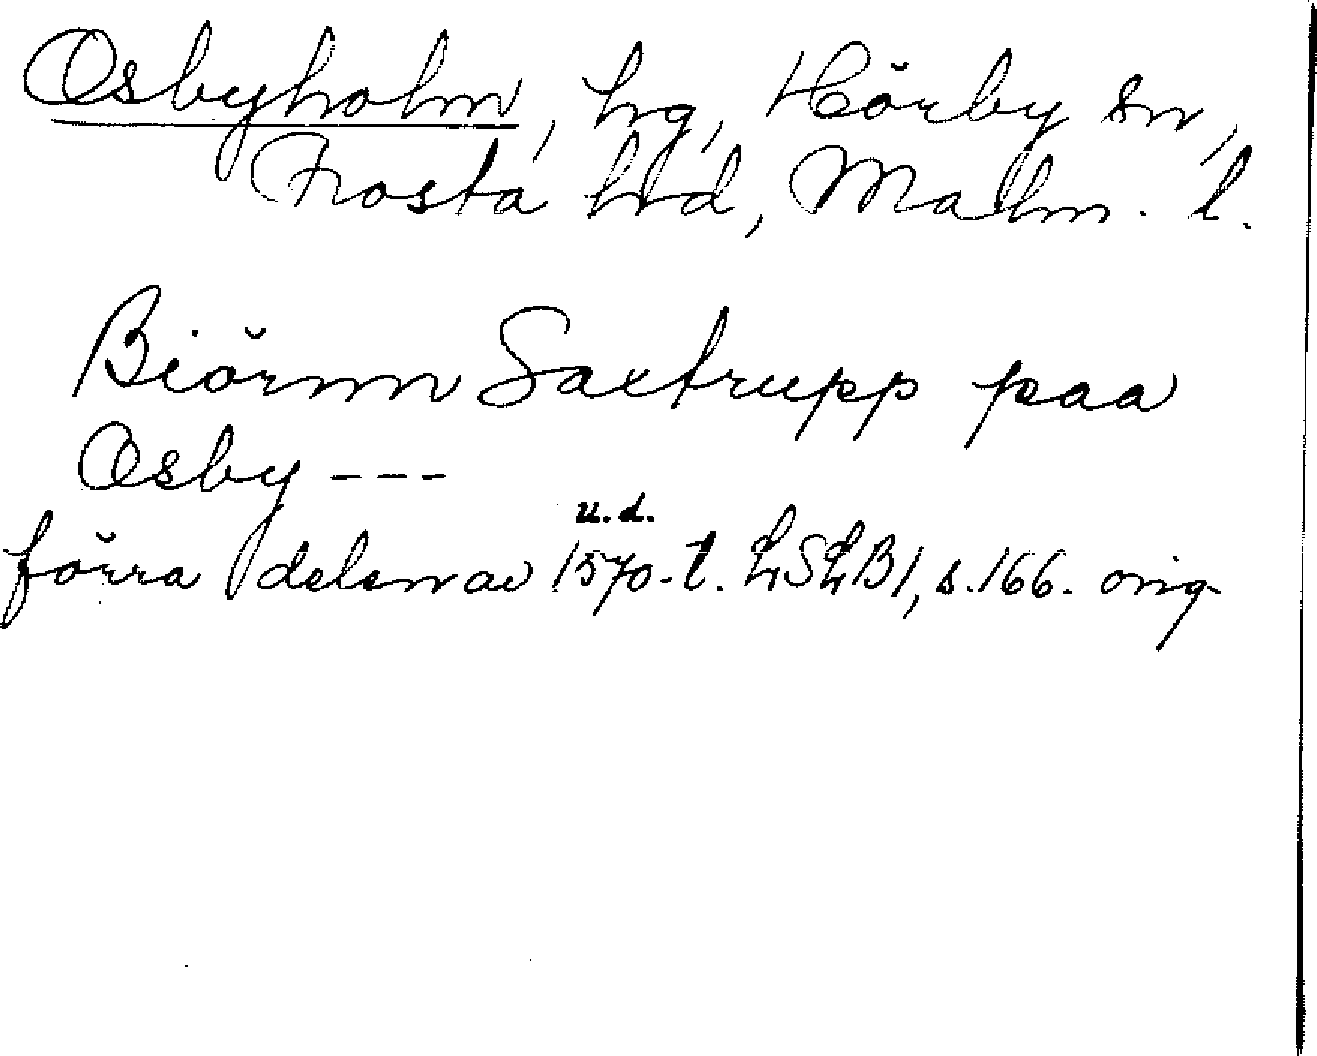 Osbyholm, hg, Hörby sn,
Frosta hd, Malm. l.
Biörnn Saxtrupp paa
Osby ---
u. d.
förra delen av 1570-t. LSLB1, s. 166. orig